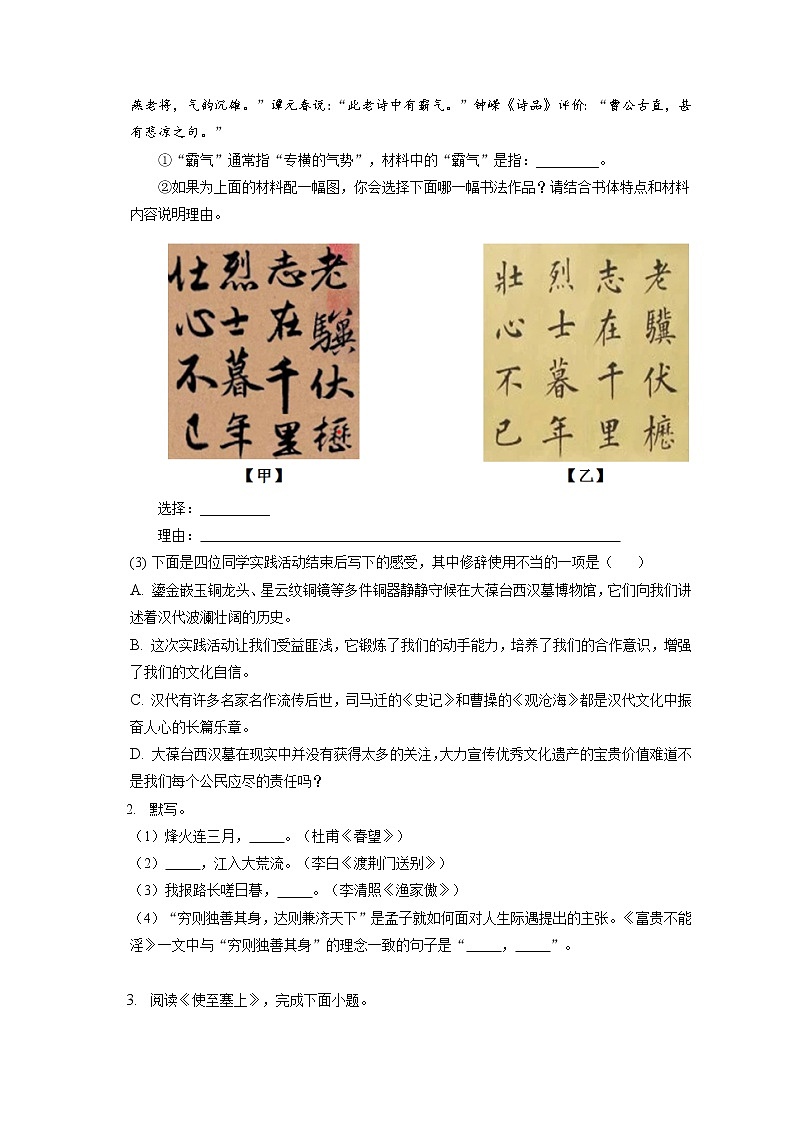 燕老将，气韵沉雄。”谭元春说：“此老诗中有霸气。”钟嵘《诗品》评价：“曹公古直，甚
有悲凉之句。”
①“霸气”通常指“专横的气势”，材料中的“霸气”是指：_________。
②如果为上面的材料配一幅图，你会选择下面哪一幅书法作品？请结合书体特点和材料
内容说明理由。
老骥伏櫪
志在千里
烈士暮年
壮心不已
老驥伏櫪
志在千里
烈士暮年
壯心不已
【甲】
【乙】
选择：__________
理由：____________________________________________________________
(3) 下面是四位同学实践活动结束后写下的感受，其中修辞使用不当的一项是（ ）
A. 鎏金嵌玉铜龙头、星云纹铜镜等多件铜器静静守候在大葆台西汉墓博物馆，它们向我们讲
述着汉代波澜壮阔的历史。
B. 这次实践活动让我们受益匪浅，它锻炼了我们的动手能力，培养了我们的合作意识，增强
了我们的文化自信。
C. 汉代有许多名家名作流传后世，司马迁的《史记》和曹操的《观沧海》都是汉代文化中振
奋人心的长篇乐章。
D. 大葆台西汉墓在现实中并没有获得太多的关注，大力宣传优秀文化遗产的宝贵价值难道不
是我们每个公民应尽的责任吗？
2. 默写。
（1）烽火连三月，_____。（杜甫《春望》）
（2）_____，江入大荒流。（李白《渡荆门送别》）
（3）我报路长嗟日暮，_____。（李清照《渔家傲》）
（4）“穷则独善其身，达则兼济天下”是孟子就如何面对人生际遇提出的主张。《富贵不能
淫》一文中与“穷则独善其身”的理念一致的句子是“_____，_____”。
3. 阅读《使至塞上》，完成下面小题。